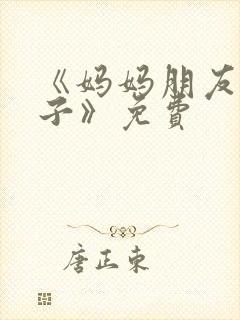 《妈妈朋友
子》免费
唐正东